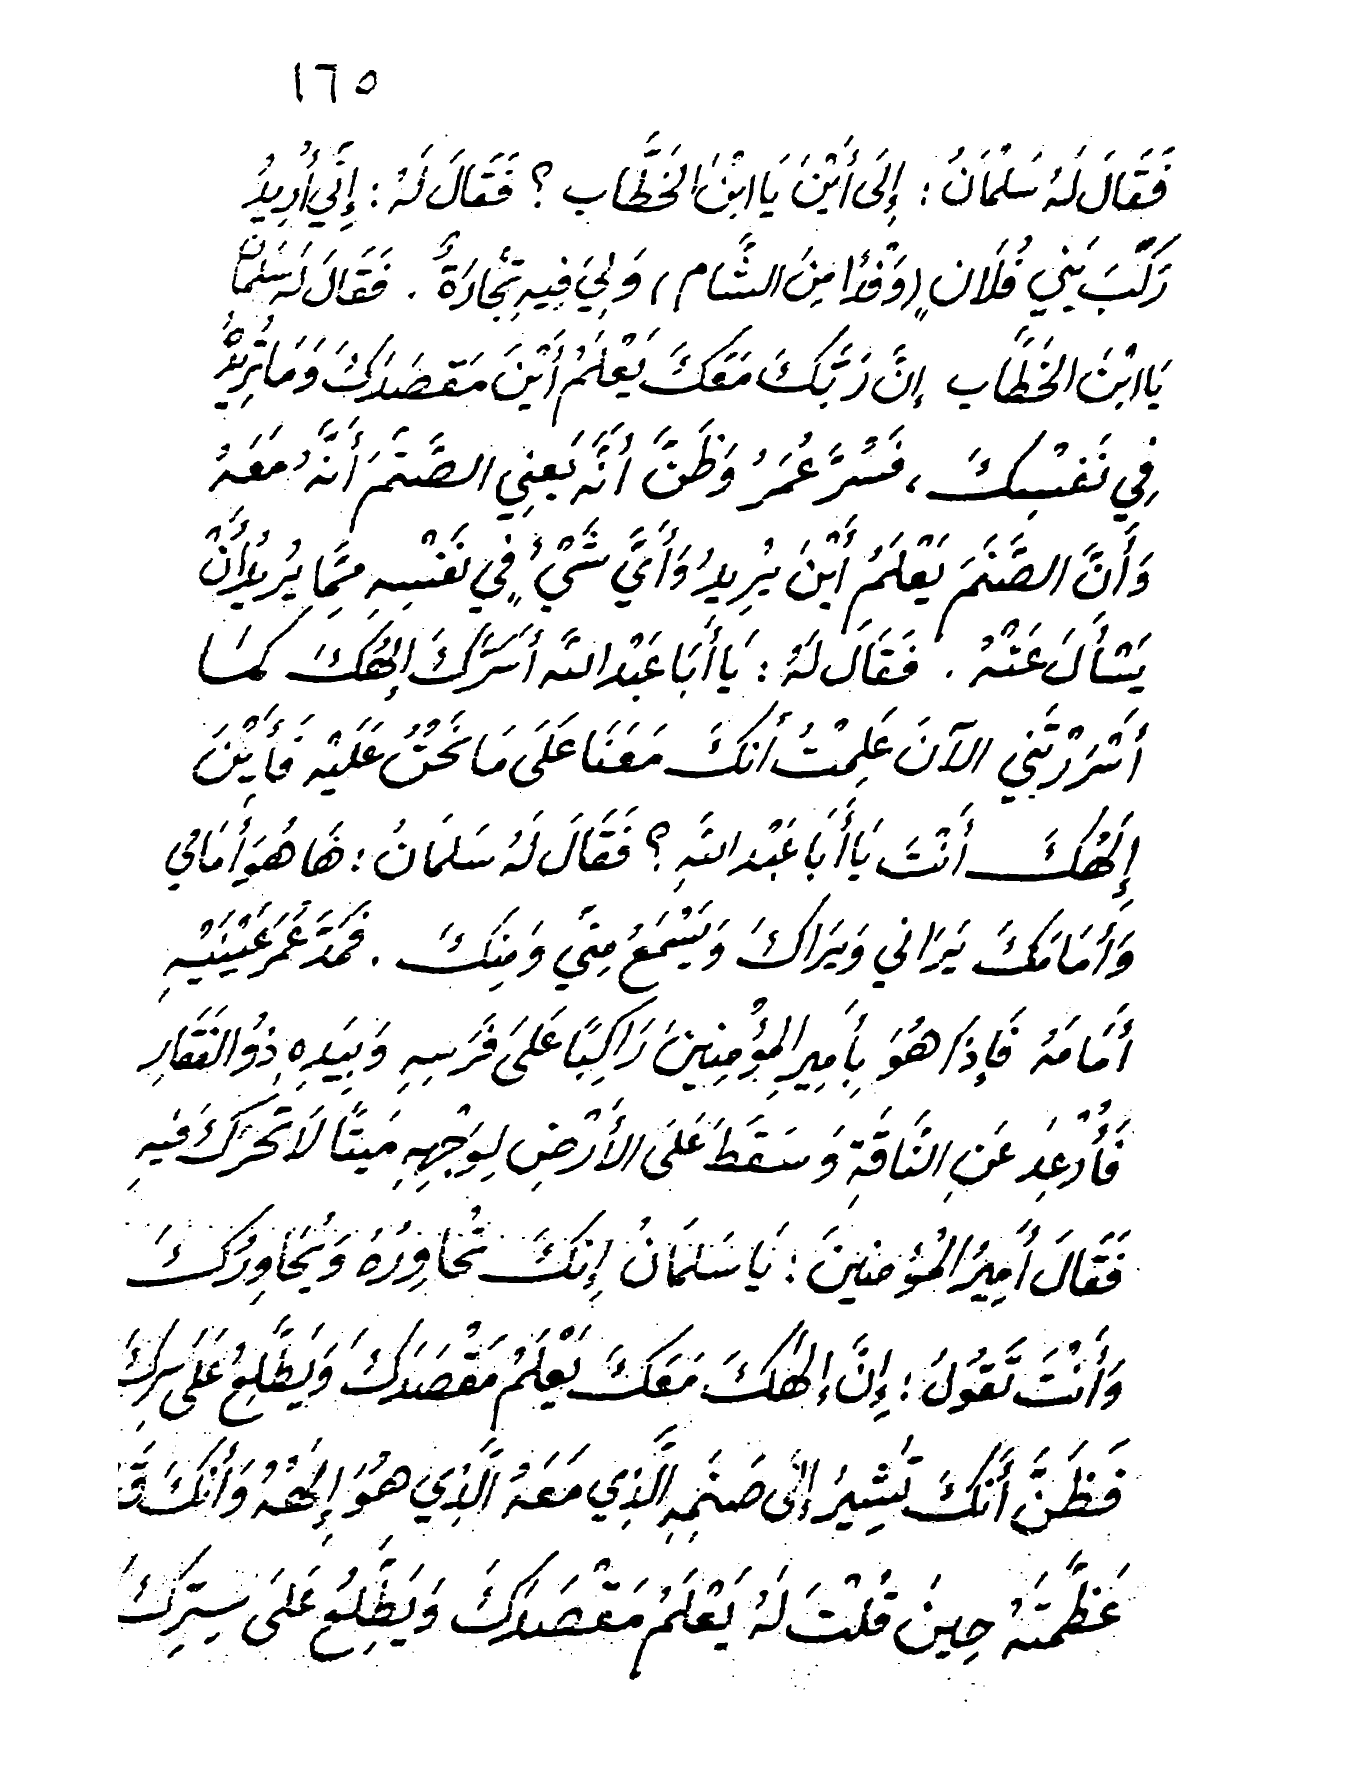 ١٦٥
فَقَالَ لَهُ سَلْمَانُ : إِلَى أَيْنَ يَا ابْنَ الخَطَّاب ؟ فَقَالَ لَهُ : إِنِّي أُرِيدُ
رَكْبَ بَنِي فُلَانٍ (وَفْدًا مِنَ الشَّام) وَلِيَ فِيهِ تِجَارَةٌ . فَقَالَ لَهُ سَلْمَانُ
يَا ابْنَ الخَطَّاب إِنَّ رَبَّكَ مَعَكَ يَعْلَمُ أَيْنَ مَقصَدَكَ وَمَا تُرِيدُ
فِي نَفْسِكَ ، فَسُرَّ عُمَرُ وَظَنَّ أَنَّهُ يَعنِي الصَّنَمَ أَنَّهُ مَعَهُ
وَأَنَّ الصَّنَمَ يَعْلَمُ أَيْنَ يُرِيدُ وَأَيَّ شَيْءٍ فِي نَفْسِهِ مِمَّا يُرِيدُ أَنْ
يَسْأَلَ عَنْهُ . فَقَالَ لَهُ : يَا أَبَا عَبْدِ اللَّه أَسَرَّكَ إِلهُكَ كَمَا
أَسْرَرْتَنِي الآنَ عَلِمْتُ أَنَّكَ مَعَنَا عَلَى مَا نَحْنُ عَلَيْهِ فَأَيْنَ
إِلَهُكَ أَنْتَ يَا أَبَا عَبْدِ اللَّهِ ؟ فَقَالَ لَهُ سَلمَانُ : هَا هُوَ أَمَامِي
وَأَمَامَكَ يَرَانِي وَيَرَاكَ وَيَسْمَعُ مِنِّي وَمِنكَ . فَمَدَّ عُمَرُ عَيْنَيْهِ
أَمَامَهُ فَإِذَا هُوَ بِأَمِيرِ المُؤْمِنِينَ رَاكِبًا عَلَى فَرَسِهِ وَبِيَدِهِ ذُو الفَقَارِ
فَأُرْعِدَ عَنِ النَّاقَةِ وَسَقَطَ عَلَى الأَرْضِ لِوَجْهِهِ مَيتًا لَا تَحَرُّكَ فِيهِ
فَقَالَ أَمِيرُ المُؤمِنِينَ : يَا سَلمَانُ إِنَّكَ تُحَاوِرُهُ وَيُحَاوِرُكَ
وَأَنْتَ تَقُولُ : إِنَّ إِلَهَكَ مَعَكَ يَعْلَمُ مَقْصَدَكَ وَيَطَّلِعُ عَلَى سِرِّكَ
فَظَنَّ أَنَّكَ تُشِيرُ إِلَى صَنَمِهِ الَّذِي مَعَهُ الَّذِي هُوَ إِلَهُهُ وَأَنَّكَ قَد
عَظَّمتَهُ حِينَ قُلْتَ لَهُ يَعْلَمُ مَقْصَدَكَ وَيَطَّلِعُ عَلَى سِرِّكَ